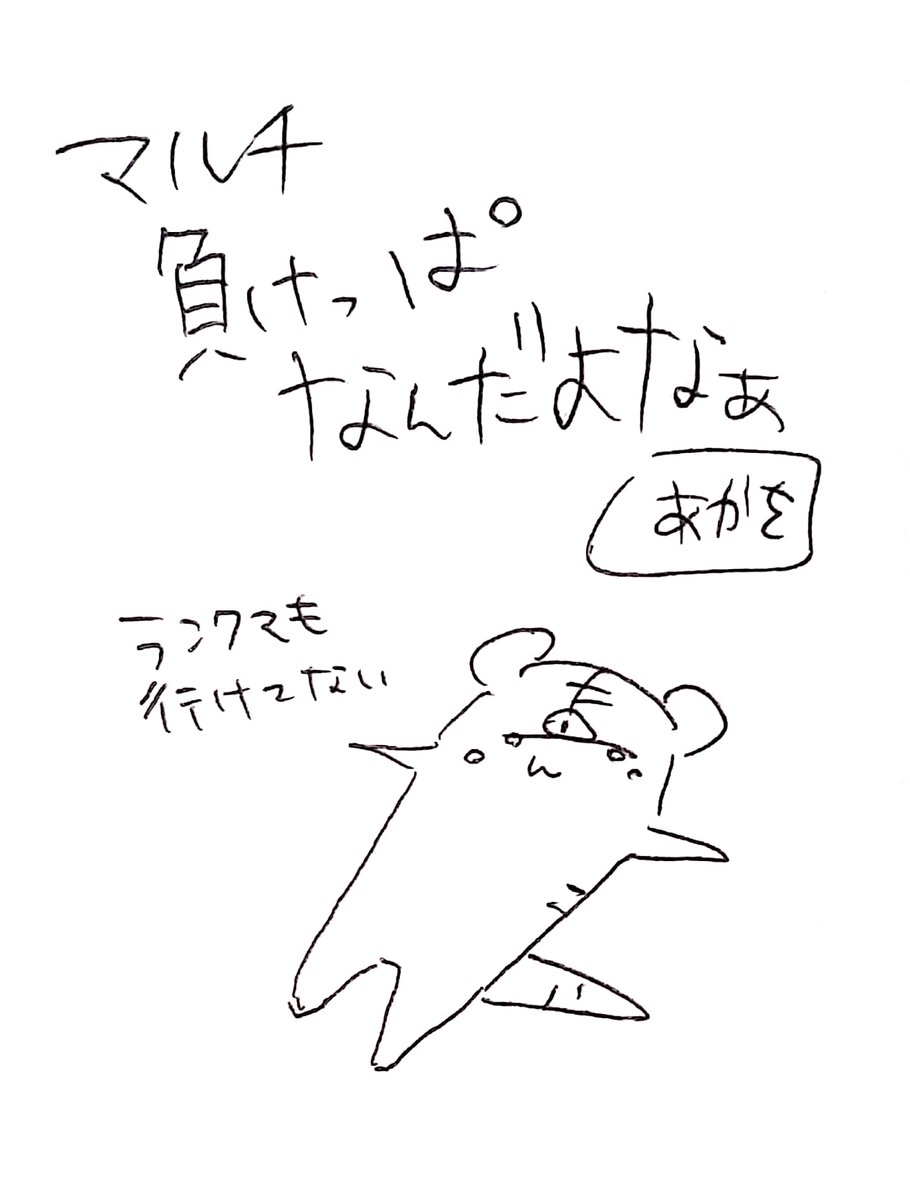 マルチ
負けっぱ
なんだよなぁ
あがき
ランクマも
行けてない